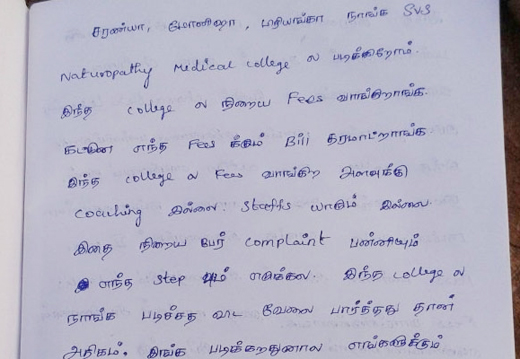 சரண்யா, மோனிஷா, பிரியங்கா நாங்க SVS
Naturopathy Medical college ல படிக்கிறோம்.
இந்த college ல நிறைய Fees வாங்கிறாங்க.
கட்டுன எந்த Fees க்கும் Bill தரமாட்றாங்க
இந்த college ல Fees வாங்கிற அளவுக்கு
coaching இல்லை. Staffs யாரும் இல்லை.
இதை நிறைய பேர் complaint பண்ணியும்
எந்த step ம் எடுக்கல. இந்த college ல
நாங்க படிச்சத விட வேலை பார்த்தது தான்
அதிகம். இங்க படிக்கறதுனால எங்களுக்கும்